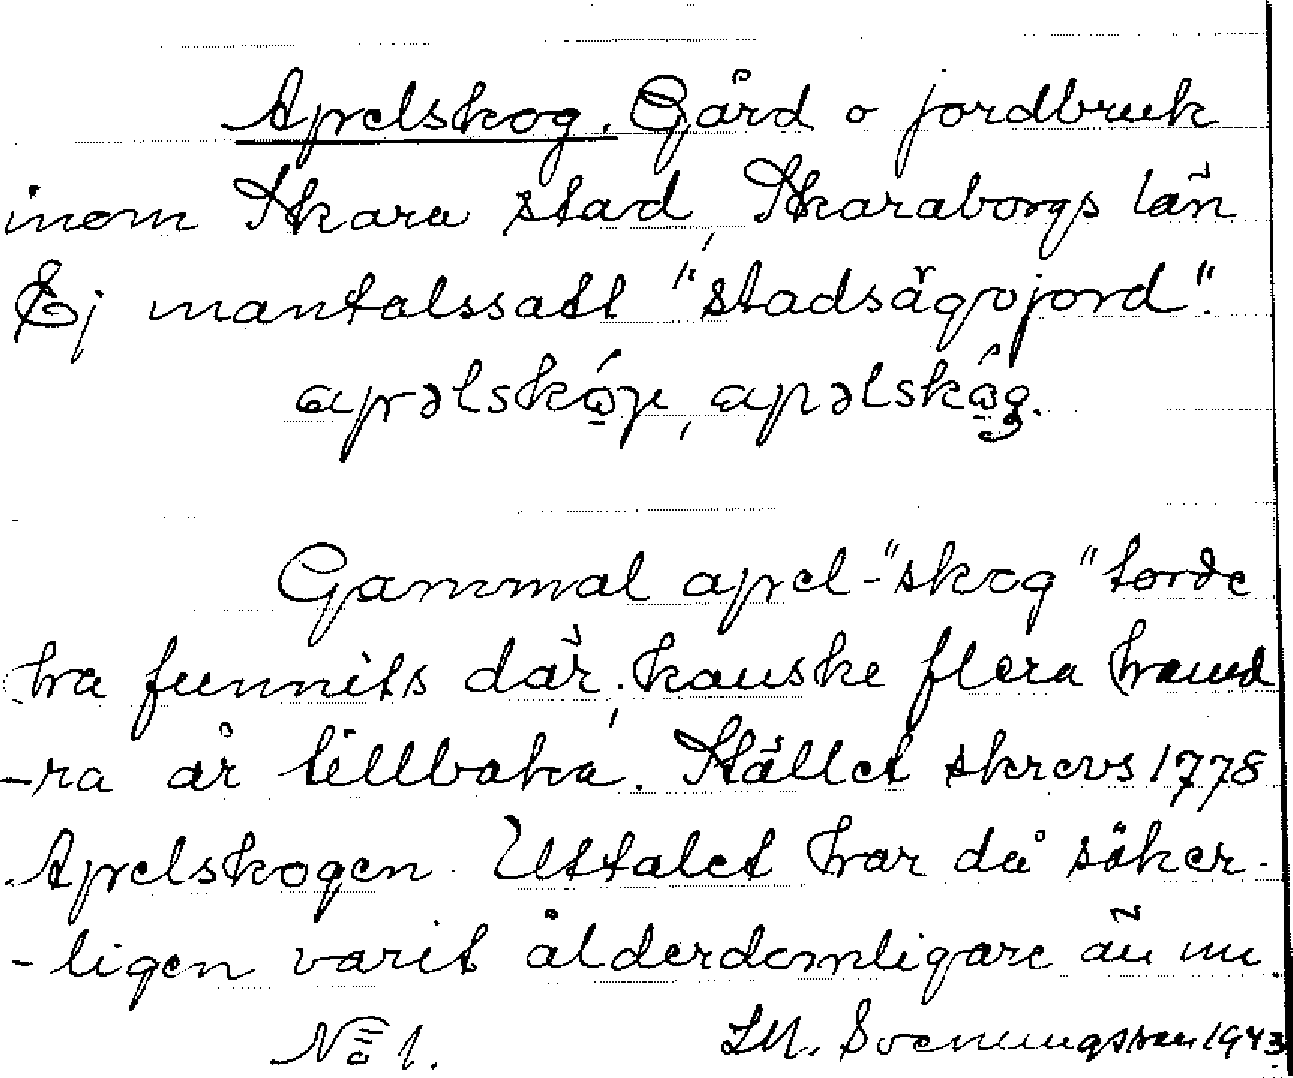 Apelskog. Gård o jordbruk
inom Skara stad, Skaraborgs län
Ej mantalssatt "stadsägojord".
apəlskóp, apəlskôg.
Gammal apel-"skog" torde
ha funnits där, kanske flera hund
-ra år tillbaka. Stället skrevs 1778
Apelskogen. Uttalet har då säker-
-ligen varit ålderdomligare än nu.
No 1. Svenungsson 1943